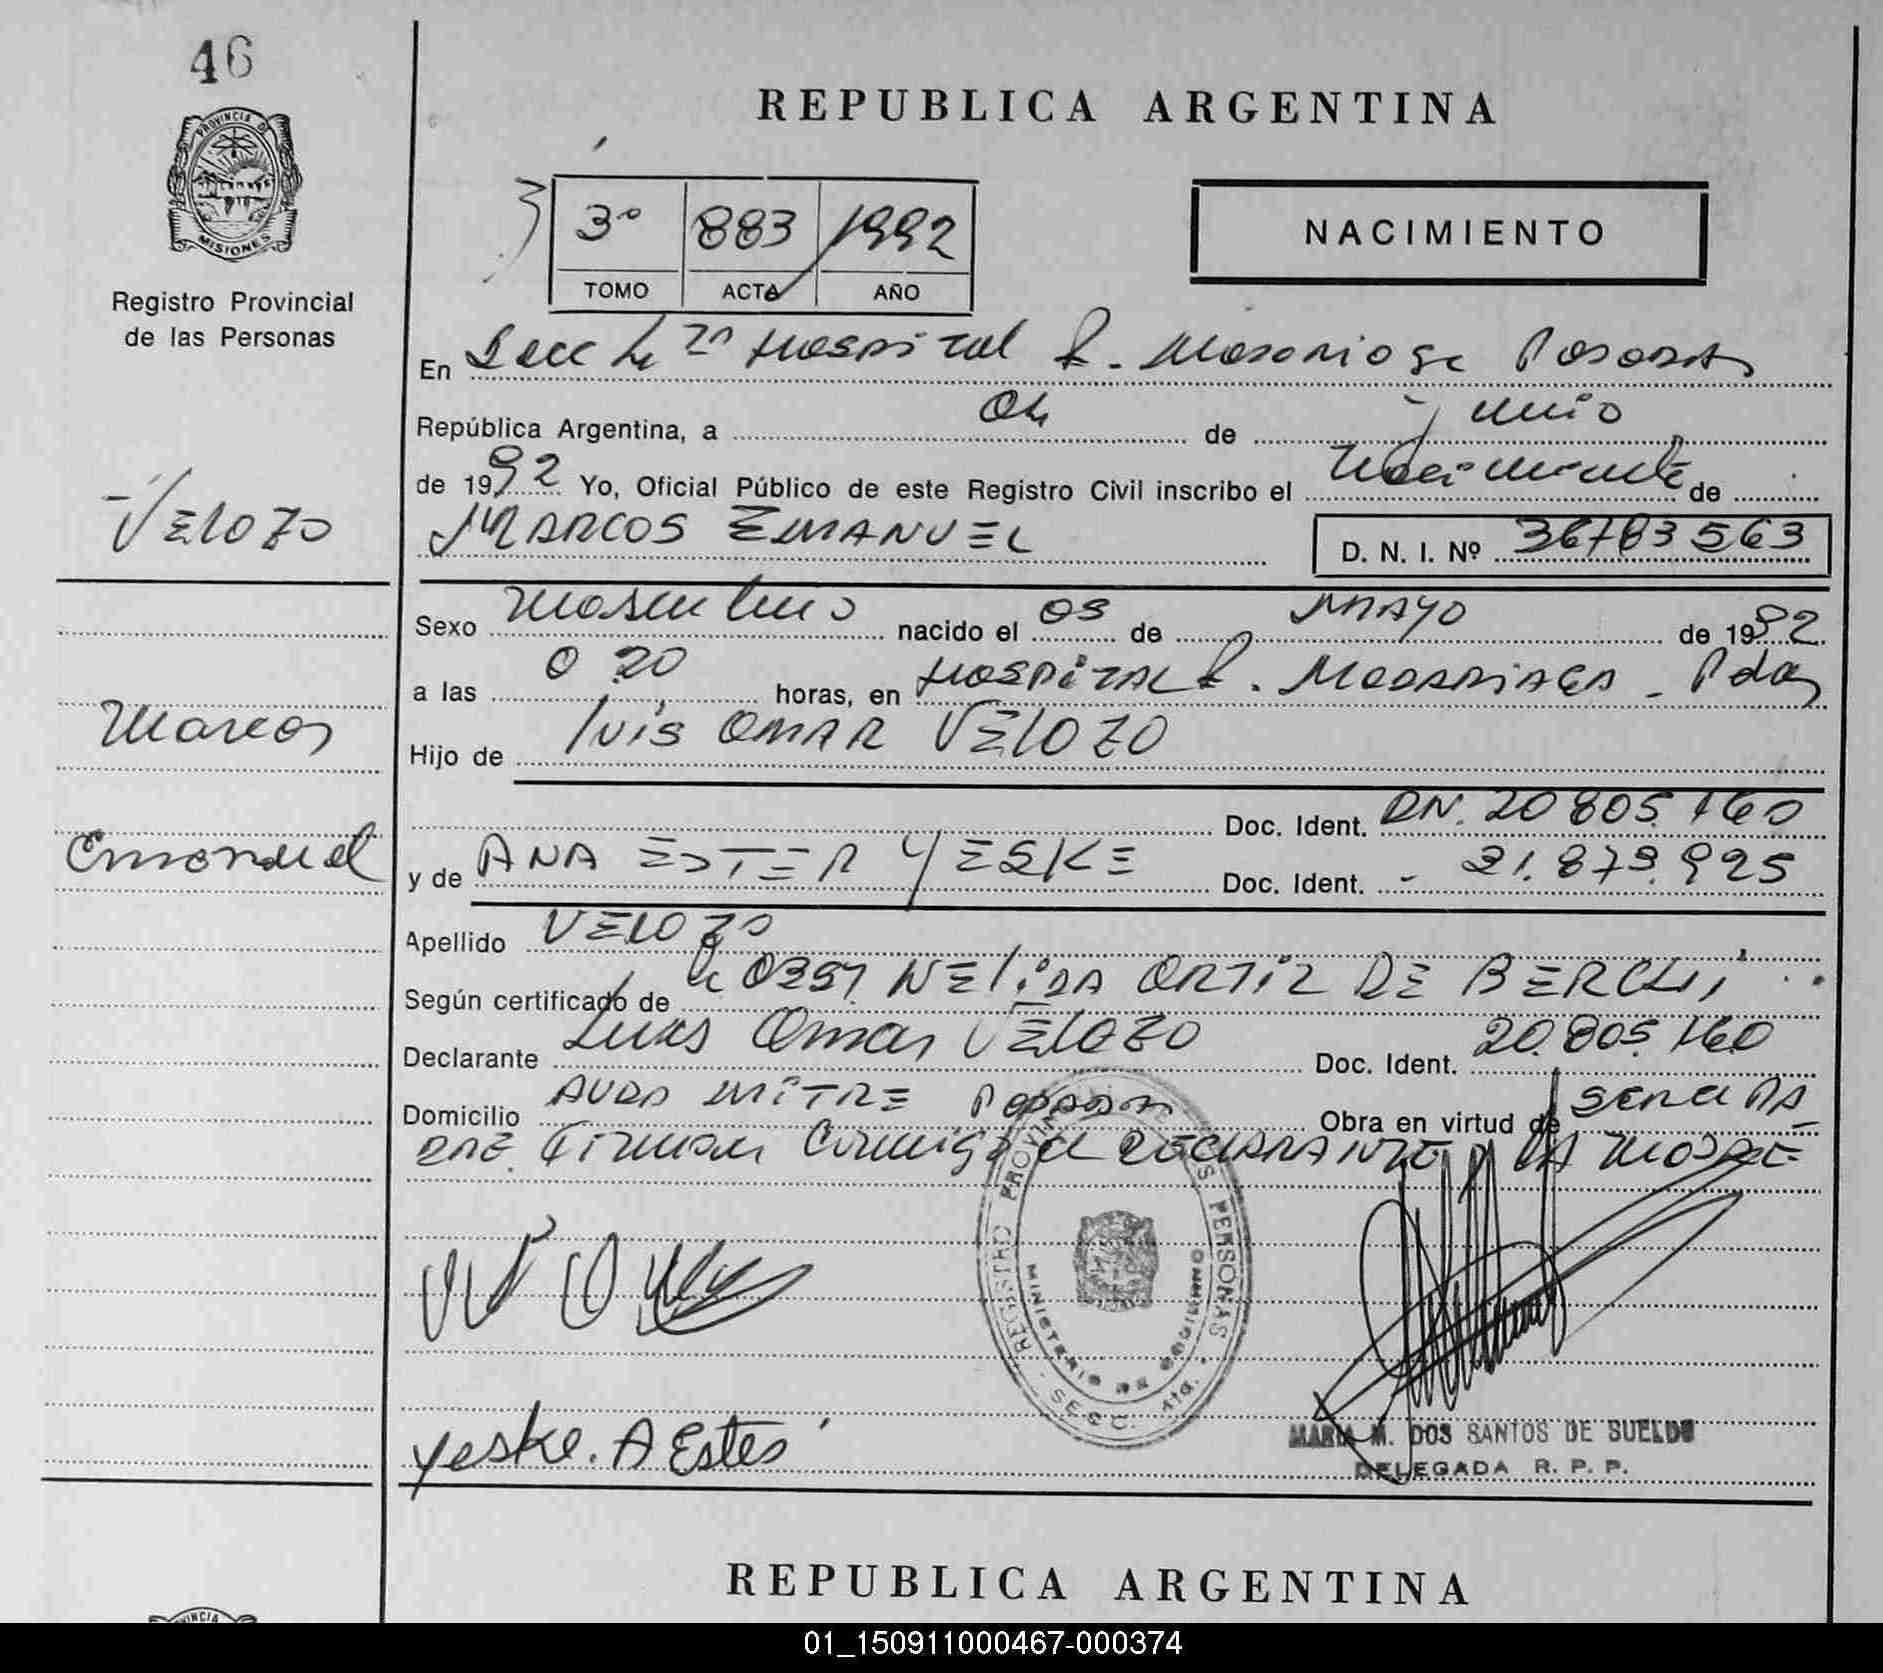 46
PROVINCIA DE
MISIONES
Registro Provincial
de las Personas
REPUBLICA ARGENTINA
3º 883 1992
TOMO ACTA AÑO
NACIMIENTO
En Hospital R. Posadas
República Argentina, a 04 de junio
de 1992 Yo, Oficial Público de este Registro Civil inscribo el Nacimiento de
VELOZO
MARCOS EMANUEL D. N. I. Nº 36783563
Sexo Masculino nacido el 09 de MAYO de 1992
a las 0 20 horas, en HOSPITAL R. MADARIAGA - Pdas
Marcos
Hijo de luis OMAR VELOZO
Doc. Ident. DN. 20 805.160
Emanuel
y de ANA ESTER YESKE Doc. Ident. - 21.879.925
Apellido VELOZO
Según certificado de NELIDA ORTIZ DE
Declarante Luis Omar VELOZO Doc. Ident. 20.805.160
Domicilio AVDA MITRE Posadas Obra en virtud de
Firman Conmigo el DECLARANTE y LA MADRE
REGISTRO PROVINCIAL DE LAS PERSONAS
MINISTERIO DE GOBIERNO
SECC. 4ta.
Yeske. A Ester
MARIA M. DOS SANTOS DE SUELDO
DELEGADA R. P. P.
REPUBLICA ARGENTINA
01_150911000467-000374